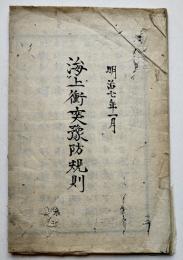 明治七年一月
海上衝突豫防規則